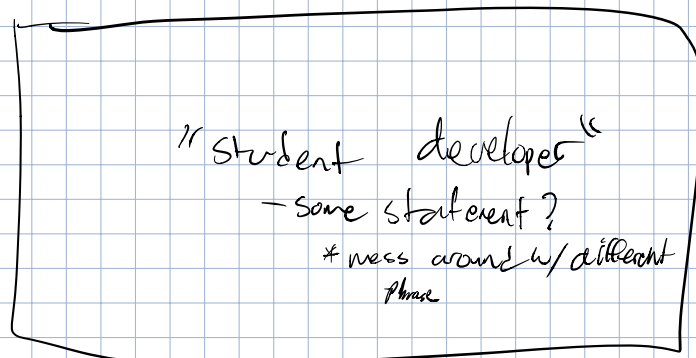 "student developer"
- some statement?
* mess around w/ different
phrase